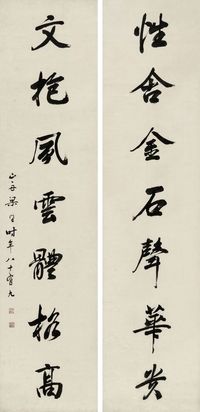 性含金石聲華貴
文抱風雲體格高
山舟梁同書時年八十有九